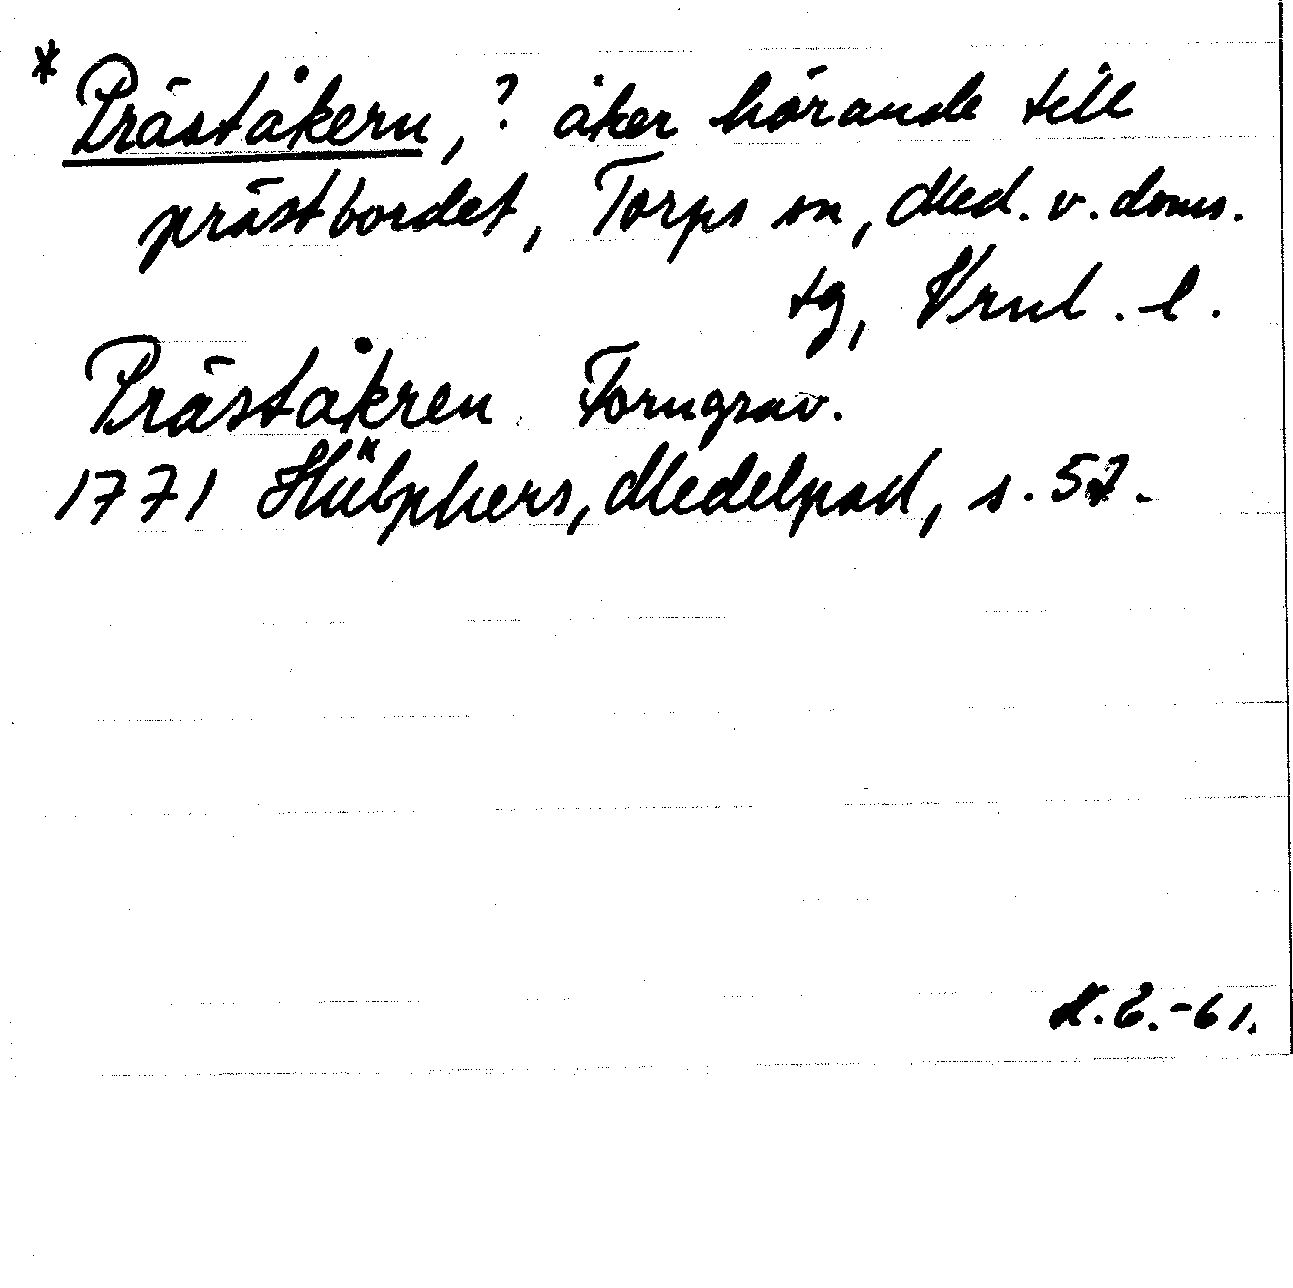 * Präståkern, ? åker hörande till
prästbordet, Torps sn, Med. v. doms.
tg, Vrnl. l.
Präståkren Forngrav.
1771 Hülphers, Medelpad, s. 57.
M.E.-61.